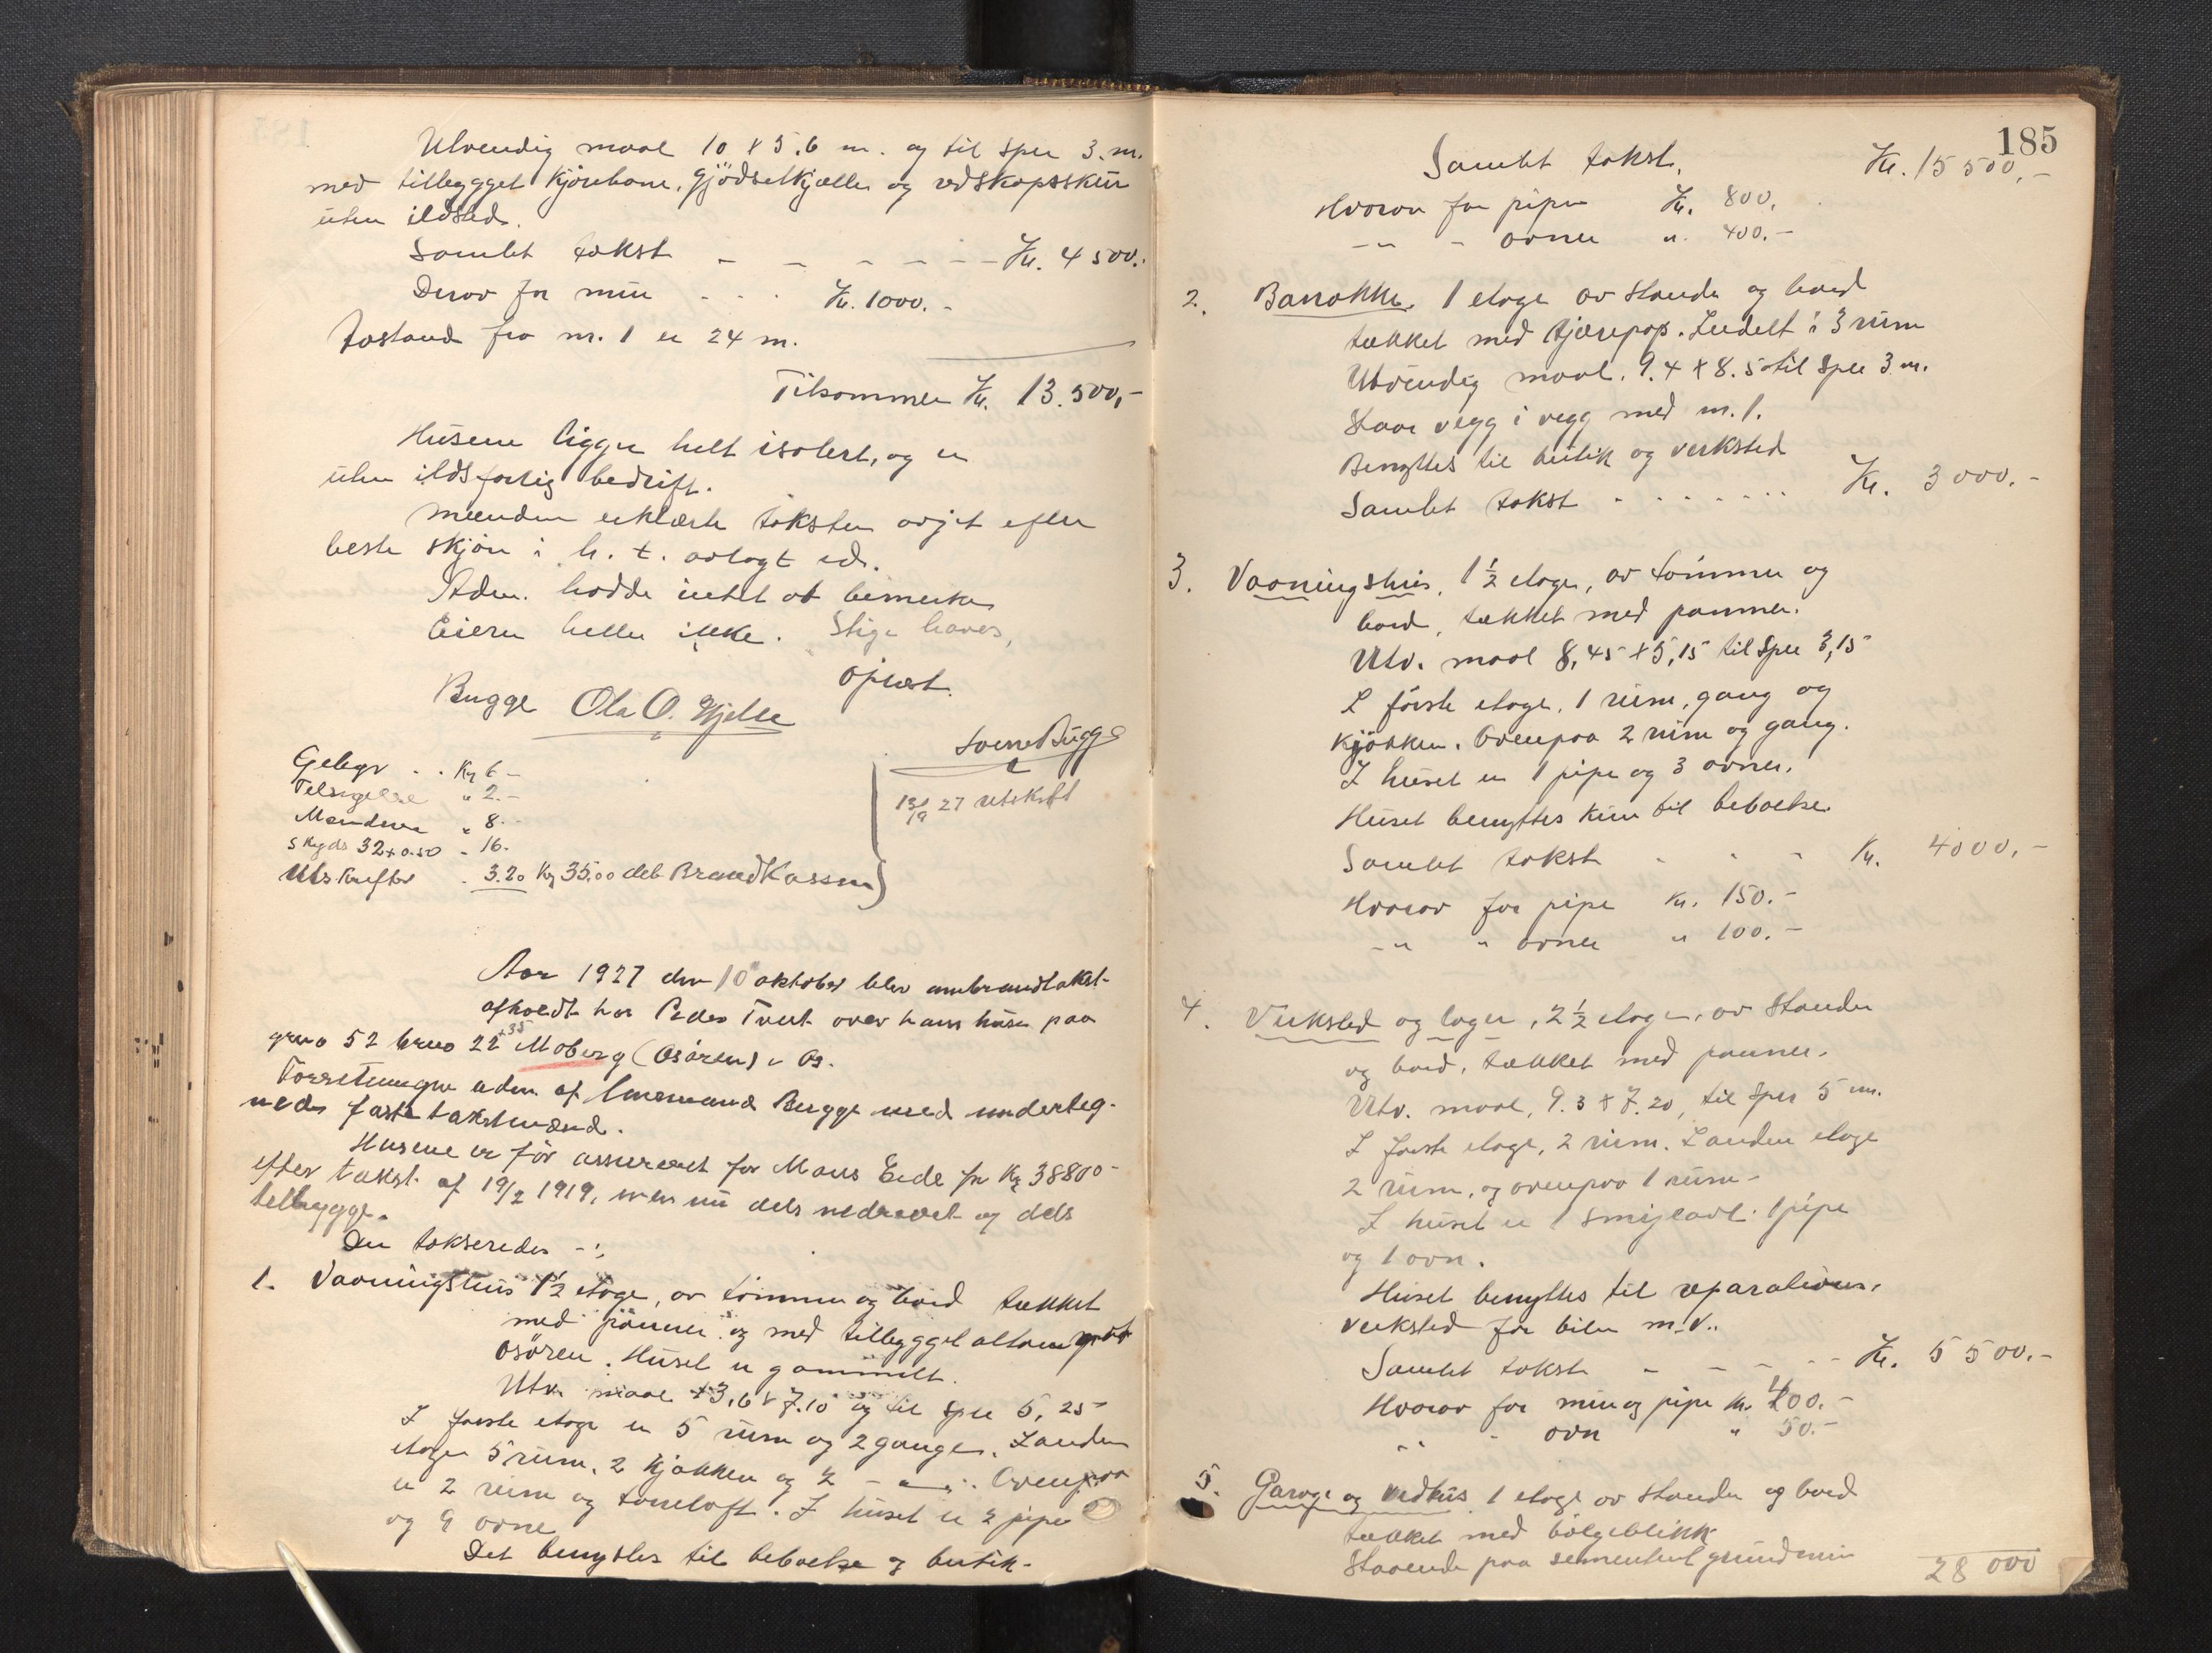 Utvendig maal 10 x 5.6 m. og til Sper 3. m.
med tilbygget kjörebane, gjödselkjæller og redskapsskur
uten ildsted.
Samlet takst - - - - - - Kr. 4 500.-
Derav for mur - - . Kr. 1000.-
Avstand fra nr. 1 er 24 m.
Tilsammen Kr. 13.500,-
Husene ligger helt isolert, og er
uten ildsfarlig bedrift.
Mændene erklærte taksten avgit efter
beste skjön i h. t. avlagt ed.
Adm. hadde intet at bemerke
Eieren heller ikke. Stige haves,
Oplæst.
Bugge Ola O. Hjelle
Bugge
Gebyr . . Kr 6 -
Tilsigelse " 2.-
Mændene " 8.-
Skyds 32 x 0.50 " 16.-
Utskrifter . 3.20 Kr 35,00 deb Brandkassen
27 utskrift
Aar 1927 den 10 oktober blev ombrandtakst
afholdt hos Peder Tveit over hans huse paa
grno 52 brno 22 + 35 Moberg (Osören) i Os.
Forretningen adm. af lensmand Bugge med underteg-
nede faste takstmænd.
Husene er för assureret for Mons Eide for Kr 38800-
efter takst af 19/2 1919, men nu dels nedrevet og dels
tilbygget.
Der takseredes -:
1. Vaaningshus 1½ etage, av tömmer og bord tækket
med panner og med tilbygget altan mot
Osören. Huset er gammelt.
Utv. maal 13,6 x 7.10 og til Sper 5,25
I förste etage er 5 rum og 2 gange. I anden
etage 5 rum, 2 kjökken og 2 - " -. Ovenpaa
er 2 rum og törreloft. I huset er 2 piper
og 9 ovne
Det benyttes til beboelse og butik.
185
Samlet takst. Kr. 15 500,-
Hvorav for piper Kr. 800.
-"- - ovner ". 400.-
2. Barakke. 1 etage av stander og bord
tækket med tjærepap. Indelt i 3 rum
Utvendig maal. 9.4 x 8.5 til Sper 3 m.
Staar vegg i vegg med nr. 1.
Benyttes til butik og verksted
Samlet takst - - - - - - Kr. 3 000.-
3. Vaaningshus, 1½ etage, av tömmer og
bord, tækket med panner.
Utv. maal 8,45 x 5,15 til Sper 3,15
I förste etage, 1 rum, gang og
kjökken. Ovenpaa 2 rum og gang.
I huset er 1 pipe og 3 ovner.
Huset benyttes kun til beboelse.
Samlet takst - - - Kr. 4000,-
Hvorav for pipe Kr. 150.-
-" " ovner " 100.-
4. Verksted og lager, 2½ etage, av stander
og bord, tækket med panner.
Utv. maal, 9.3 x 7.20, til Sper 5 m.
I förste etage, 2 rum. I anden etage
2 rum, og ovenpaa 1 rum-
I huset er 1 smijeavl. 1 pipe
og 1 ovn.
Huset benyttes til reparations-
verksted for biler m.v..
Samlet takst - - - - - Kr. 5 500.-
Hvorav for mur og pipe Kr. 400.-
-" - ovn " 50.-
5. Garage og vedhus 1 etage av stander og bord
tækket med bölgeblikk
Staaende paa sementert grundmur
28 000